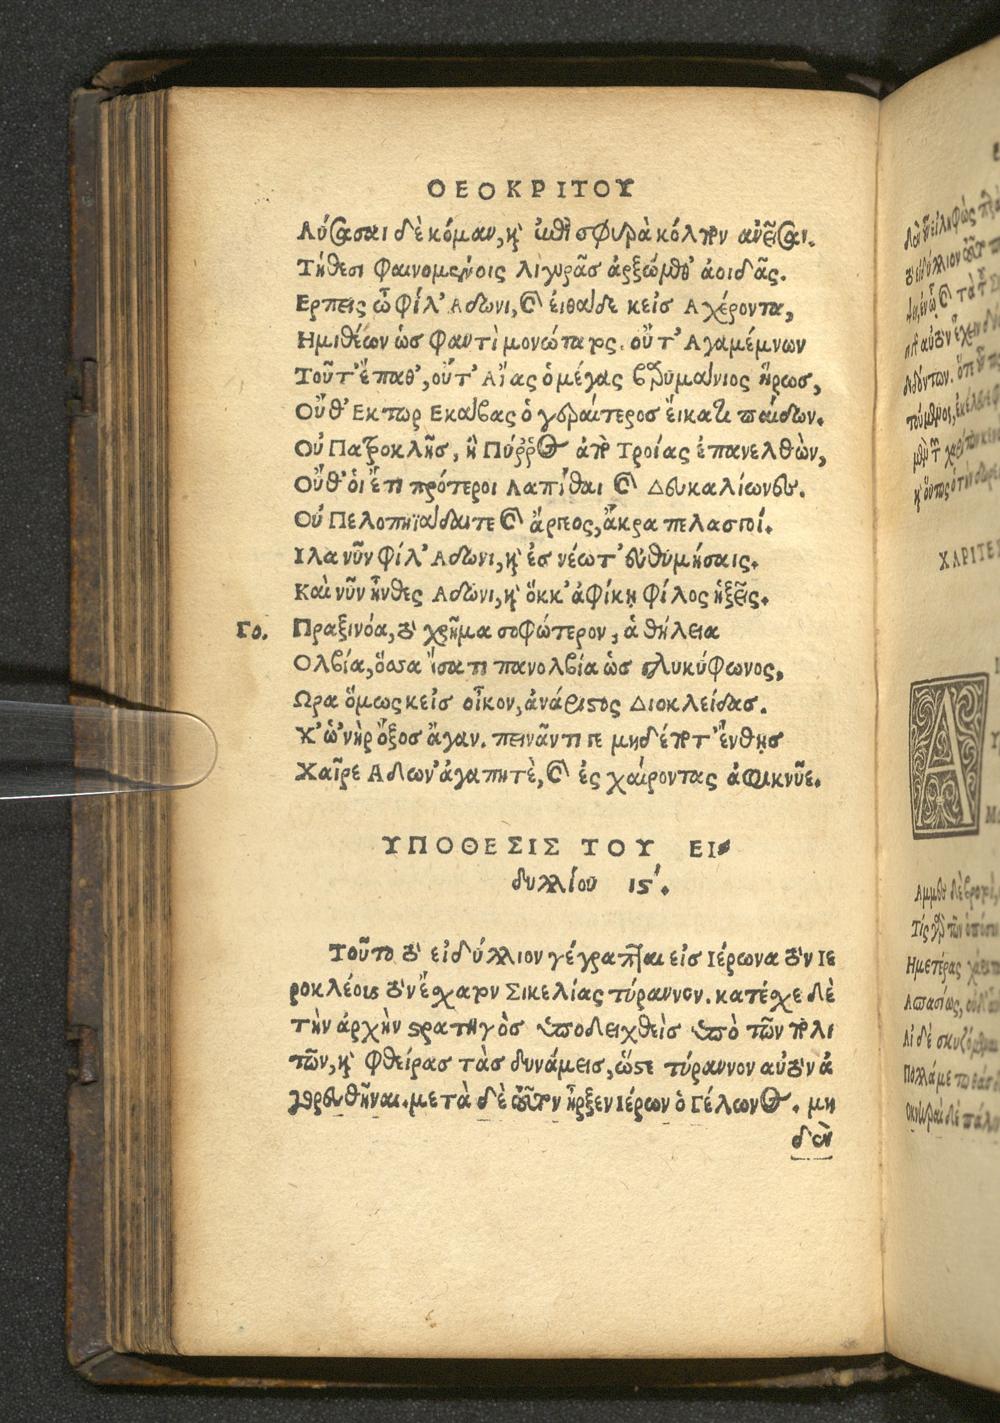 ΘΕΟΚΡΙΤΟΥ
Λύσασαι δὲ κόμαν, καὶ ἐπὶ σφυρὰ κόλπον ἀνεῖσαι.
Τήθεσι φαινομένοις λιγυρᾶσ ἀρξώμεθ' ἀοιδᾶς.
Ερπεις ὦ φίλ' Αδωνι, καὶ ἐνθάδε κεἰσ Αχέροντα,
Ημιθέων ὡσ φαντὶ μονώτατος. οὔτ' Αγαμέμνων
Τοῦτ' ἔπαθ', οὔτ' Αἴας ὁ μέγας βαρύμανιος ἥρωσ,
Οὔθ' Εκτωρ Εκάβας ὁ γεραίτεροσ εἴκατι παίδων.
Οὐ Πατροκλῆσ, ἢ Πύρρος ἀπὸ Τροίας ἐπανελθὼν,
Οὔθ' ὁι ἔτι πρότεροι Λαπίθαι καὶ Δευκαλίωνες.
Οὐ Πελοπηϊάδαι τε καὶ ἄργεος, ἄκρα πελασγοί.
Ιλα νῦν φίλ' Αδωνι, καὶ ἐσ νέωτ' εὐθυμήσαις.
Καὶ νῦν ἦνθες Αδωνι, καὶ ὅκκ' ἀφίκῃ φίλος ἡξεῖς.
Γο. Πραξινόα, τὸ χρῆμα σοφώτερον, ἁ θήλεια
Ολβία, ὅσσα ἴσατι πανολβία ὡσ γλυκύφωνος,
Ωρα ὅμως κεἰσ οἶκον, ἀνάριστος Διοκλείδασ.
Χ' ὡ'νὴρ ὄξοσ ἄγαν. πεινᾶντι γε μηδέποτ' ἔνθῃσ
Χαῖρε Αδων' ἀγαπητὲ, καὶ ἐς χαίροντας ἀφικνῦε.
ΥΠΟΘΕΣΙΣ ΤΟΥ ΕΙ-
δυλλίου ις'.
Τοῦτο τὸ εἰδύλλιον γέγραπται εἰσ Ιέρωνα τὸν Ιε
ροκλέους τὸν ἔσχατον Σικελίας τύραννον. κατέσχε δὲ
τὴν ἀρχὴν στρατηγὸσ ὑποδειχθεὶσ ὑπὸ τῶν πολι
τῶν, καὶ φθείρασ τὰσ δυνάμεισ, ὥστε τύραννον αὐτὸν ἀ
γορευθῆναι. μετὰ δὲ τοῦτον ἦρξεν Ιέρων ὁ Γέλωνος. μη
δὲν
ΧΑΡΙΤΕ
Α